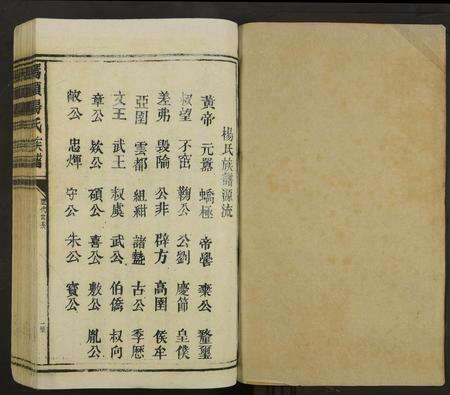 楊氏族譜源流
黃帝 元囂 蟜極 帝嚳 棄公 螯璽
叔望 不窋 鞠公 公劉 慶節 皇僕
差弗 毀隃 公非 辟方 高圉 侯牟
亞圉 雲都 組紺 諸盩 古公 季歷
文王 武王 叔虞 武公 伯僑 叔向
章公 欵公 碩公 喜公 敷公 胤公
敞公 忠煇 守公 朱公 寶公
楊氏族譜